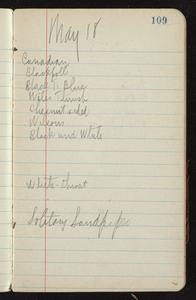 109
May 18
Canadian
Blackpoll
Black T. Blue
Water Thrush
Chestnut sided
Wilsons
Black and White
White-throat
Solitary Sandpiper